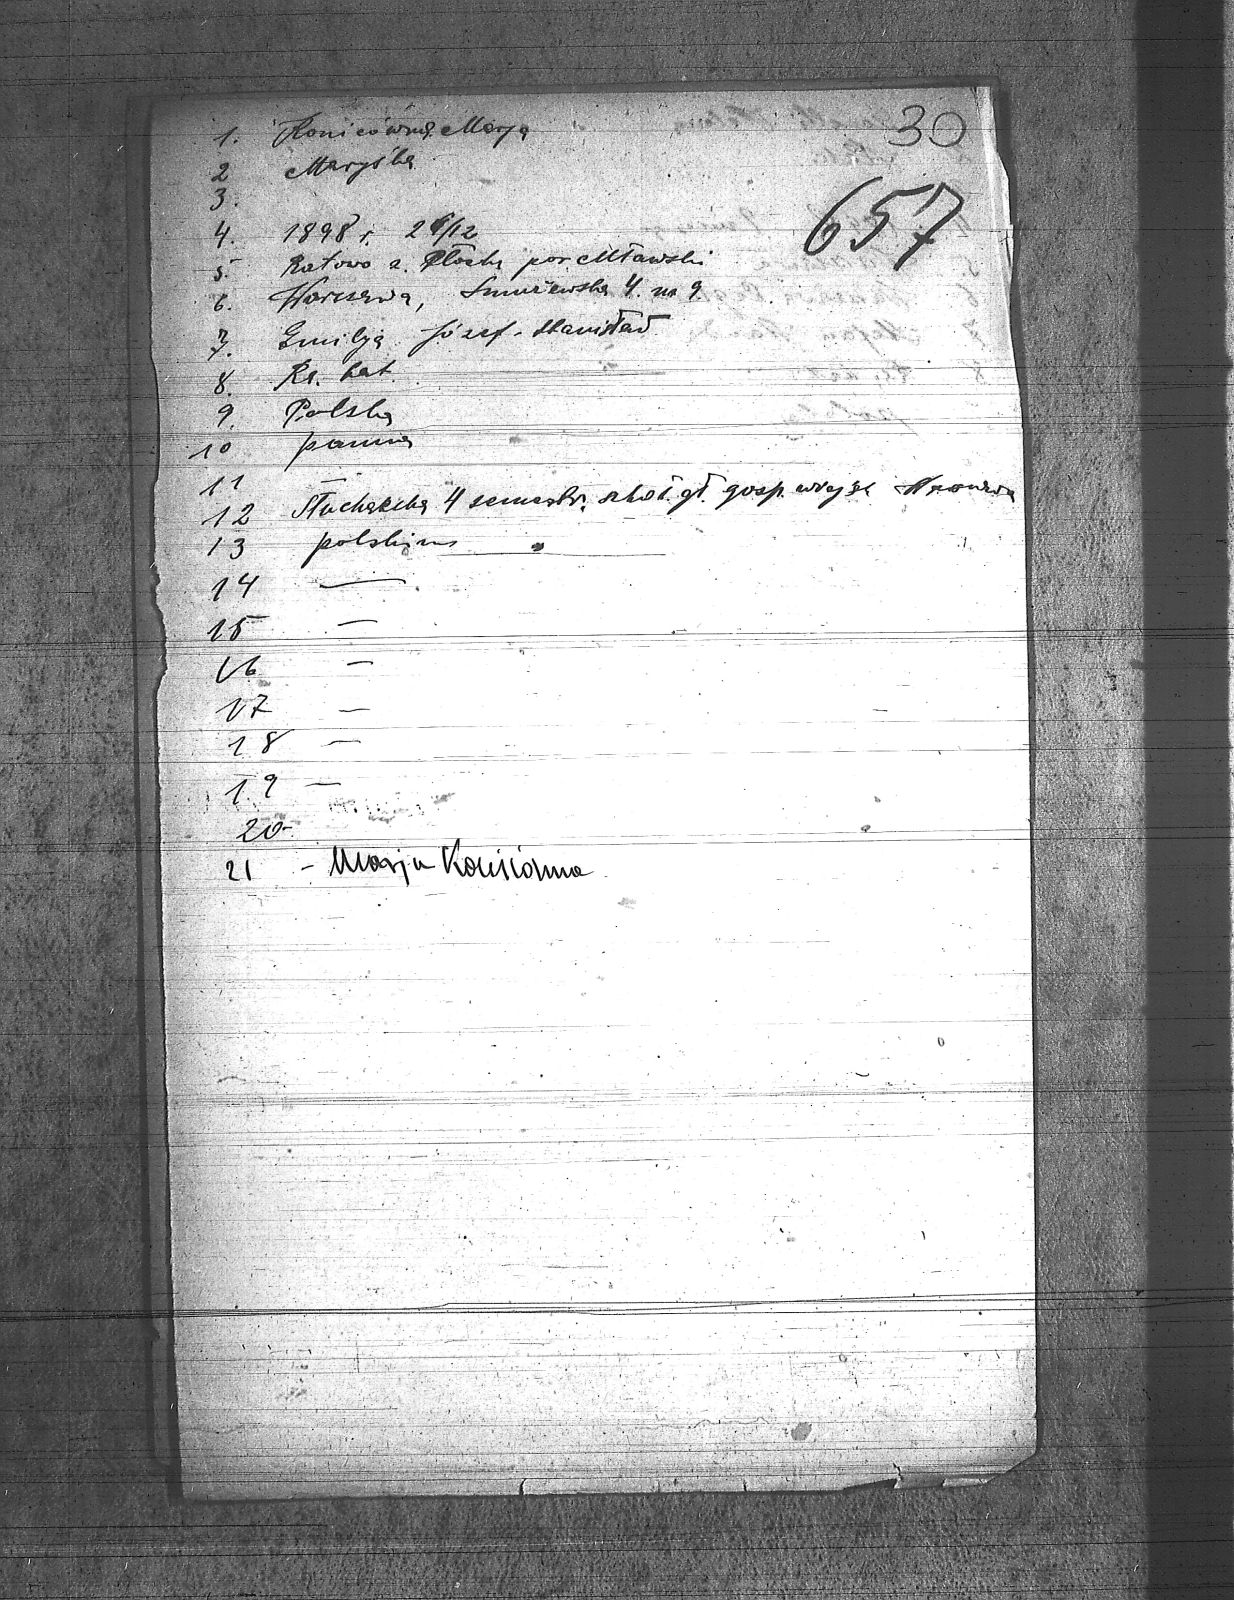 30
657
1. Konicówna Marja
2 Maryśka
3.
4. 1898 r. 26/12
5. Ratowo z. Płocka pow. Mławski
6. Warszawa, 4. m 9.
7. Emilja Józef-Stanisław
8. Rz. kat.
9. Polska
10 panna
11 —
12 Słuchaczka 4 semestr. szkoł. gł. gosp. wiejsk Warszawa
13 polskim
14 —
15 —
16 —
17 —
18 —
19 —
20-
21 - Marja Konicówna